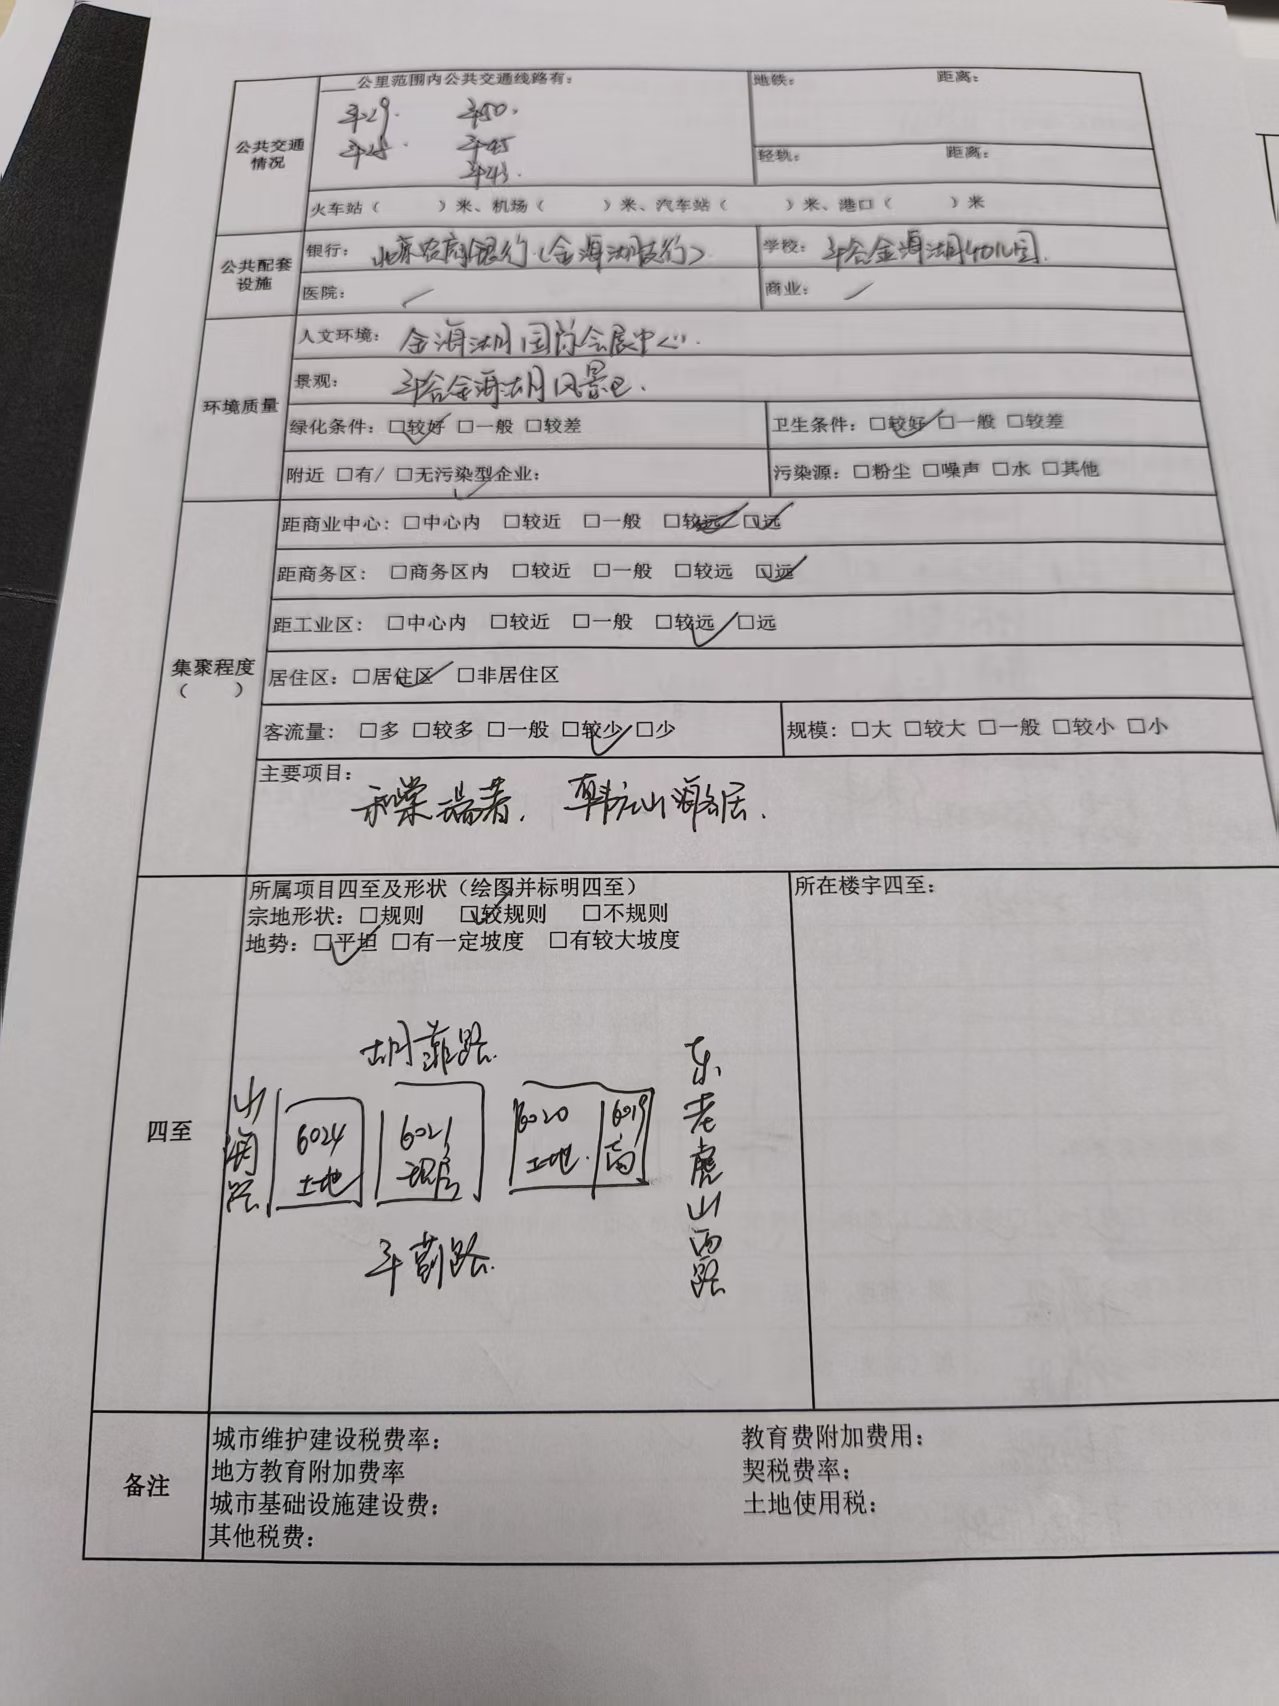 ___公里范围内公共交通线路有：
地铁： 距离：
平29. 平50.
平25. 平45
平43.
公共交通情况
轻轨： 距离：
火车站（ ）米、机场（ ）米、汽车站（ ）米、港口（ ）米
公共配套设施
银行：北京农商银行（金海湖支行） 学校：平谷金海湖幼儿园.
医院： 商业：
环境质量
人文环境：金海湖国际会展中心.
景观：平谷金海湖风景区.
绿化条件：□较好 □一般 □较差 卫生条件：□较好 □一般 □较差
附近 □有/ □无污染型企业： 污染源：□粉尘 □噪声 □水 □其他
集聚程度（ ）
距商业中心：□中心内 □较近 □一般 □较远 □远
距商务区： □商务区内 □较近 □一般 □较远 □远
距工业区： □中心内 □较近 □一般 □较远 □远
居住区：□居住区 □非居住区
客流量： □多 □较多 □一般 □较少 □少 规模：□大 □较大 □一般 □较小 □小
主要项目：
山
四至
所属项目四至及形状（绘图并标明四至） 所在楼宇四至：
宗地形状：□规则 □较规则 □不规则
地势：□平坦 □有一定坡度 □有较大坡度
胡 路.
山海路
6024 土地
6021 现房
6020 土地.
6019 商
东老虎山西路
平蓟路.
备注
城市维护建设税费率： 教育费附加费用：
地方教育附加费率 契税费率：
城市基础设施建设费： 土地使用税：
其他税费：